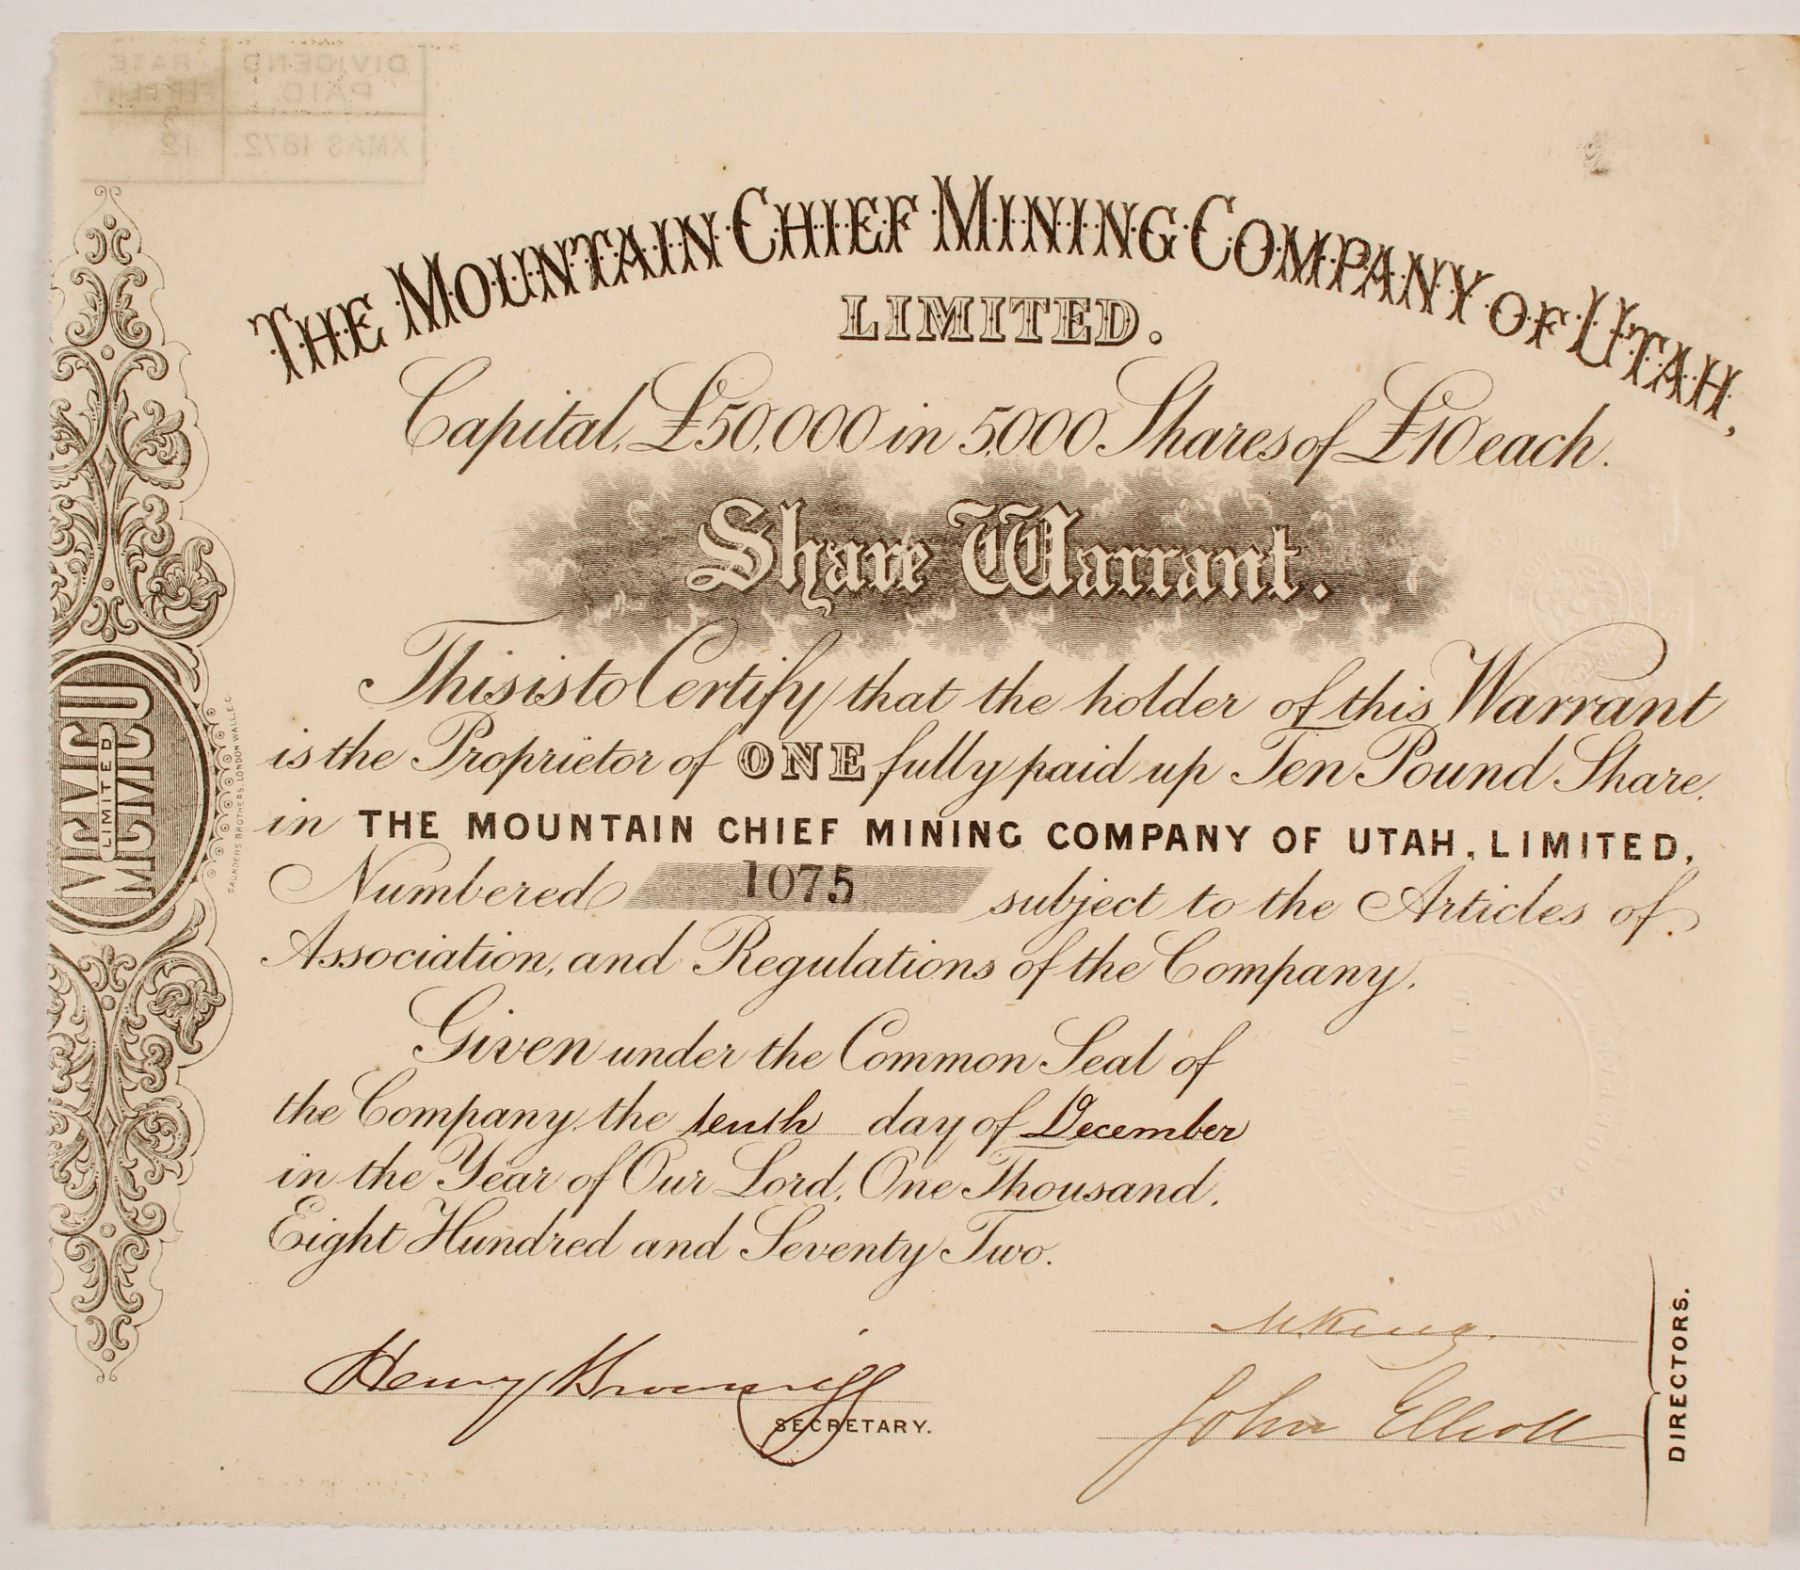 DIVIDEND PAID
RATE PER CENT
XMAS 1872
12
THE MOUNTAIN CHIEF MINING COMPANY OF UTAH,
LIMITED.
Capital, £50,000 in 5000 Shares of £10 each.
Share Warrant.
This is to Certify that the holder of this Warrant
is the Proprietor of ONE fully paid up Ten Pound Share
in THE MOUNTAIN CHIEF MINING COMPANY OF UTAH, LIMITED,
Numbered 1075 subject to the Articles of
Association, and Regulations of the Company.
Given under the Common Seal of
the Company the tenth day of December
in the Year of Our Lord, One Thousand,
Eight Hundred and Seventy Two.
Henry
SECRETARY.
King
John Elliott
DIRECTORS.
MCMCU
LIMITED
SAUNDERS BROTHERS, LONDON WALL, E.C.